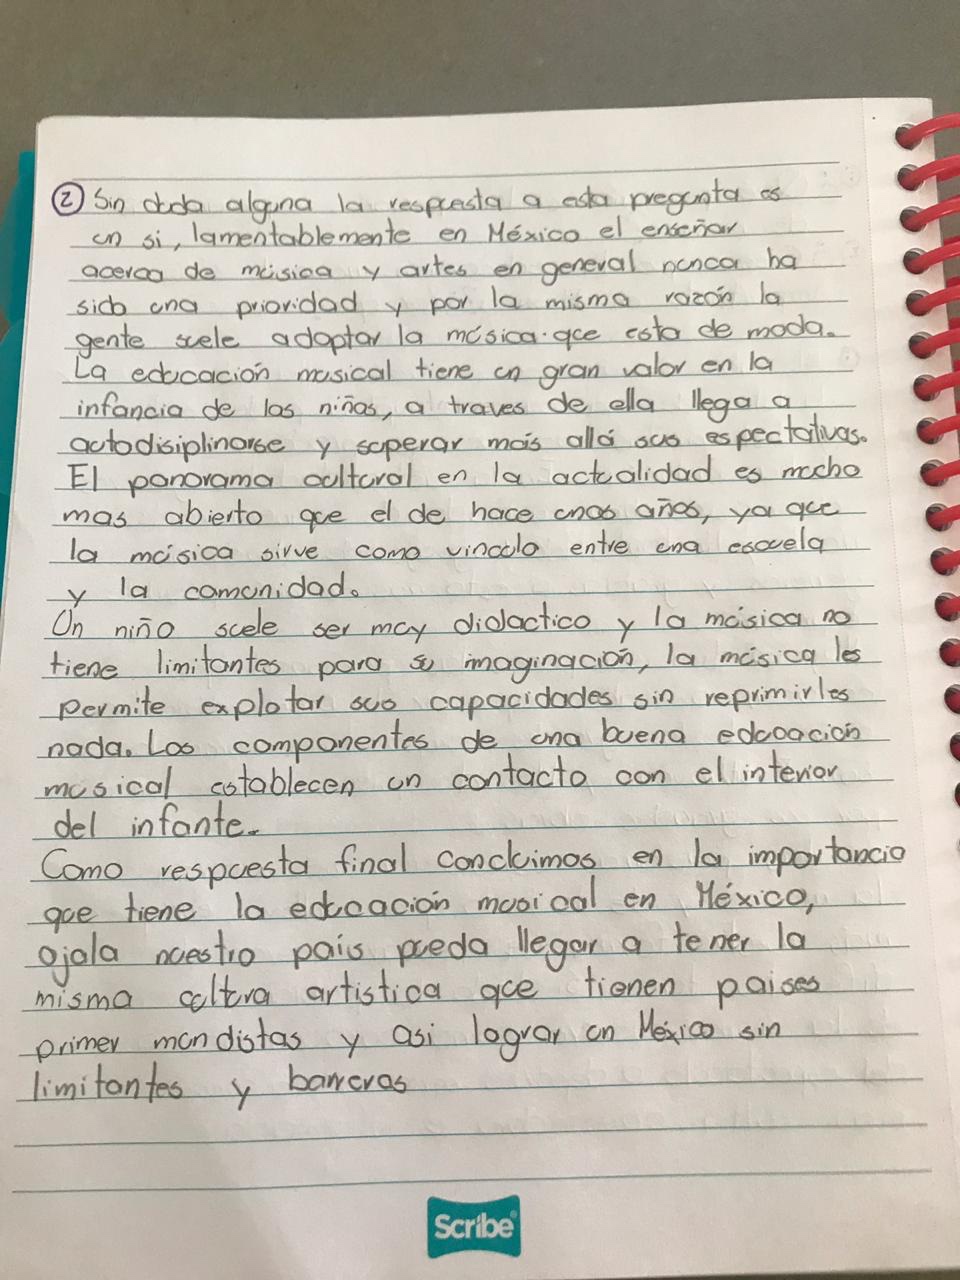 ② Sin duda alguna la respuesta a esta pregunta es
un si, lamentablemente en México el enseñar
acerca de música y artes en general nunca ha
sido una prioridad y por la misma razón la
gente suele adoptar la música que esta de moda.
La educación musical tiene un gran valor en la
infancia de los niños, a traves de ella llega a
autodisiplinarse y superar más allá sus espectativas.
El panorama cultural en la actualidad es mucho
mas abierto que el de hace unos años, ya que
la música sirve como vinculo entre una escuela
y la comunidad.
Un niño suele ser muy didactico y la música no
tiene limitantes para su imaginación, la música les
permite explotar sus capacidades sin reprimirles
nada. Los componentes de una buena educación
musical establecen un contacto con el interior
del infante.
Como respuesta final concluimos en la importancia
que tiene la educación musical en México,
ojala nuestro país pueda llegar a tener la
misma cultura artistica que tienen paises
primer mundistas y asi lograr un México sin
limitantes y barreras
Scribe